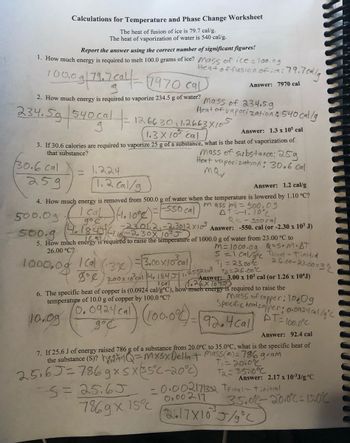 Calculations for Temperature and Phase Change Worksheet
The heat of fusion of ice is 79.7 cal/g.
The heat of vaporization of water is 540 cal/g.
Report the answer using the correct number of significant figures!
1. How much energy is required to melt 100.0 grams of ice? Mass of ice = 100.0g
Heat of fusion of ice: 79.7 cal/g
100.0g | 79.7 cal = 7970 cal
g
Answer: 7970 cal
2. How much energy is required to vaporize 234.5 g of water? mass of 234.5g
Heat of vaporization = 540 cal/g
234.5g | 540 cal = 126630 1.2663x10⁵
g
1.3 x 10⁵ cal
Answer: 1.3 x 10⁵ cal
3. If 30.6 calories are required to vaporize 25 g of a substance, what is the heat of vaporization of
that substance?
mass of substance: 25g
Heat vaporization: 30.6 cal
30.6 cal = 1.224
25g
1.2 cal/g
Answer: 1.2 cal/g
4. How much energy is removed from 500.0 g of water when the temperature is lowered by 1.10 °C?
500.0g | 1 cal | 1.10°C = -550 cal
g°C
mass = 500.0g
ΔT = -1.10°C
Answer: -550. cal (or -2.30 x 10³ J)
5. How much energy is required to raise the temperature of 1000.0 g of water from 23.00 °C to
26.00 °C?
m = 1000.0g Q = S·M·ΔT
S = 1 cal/g°C
T₁ = 23.00°C
T₂ = 26.00°C
26.00 - 23.00 = 3°C
Answer: 3.00 x 10³ cal (or 1.26 x 10⁴J)
6. The specific heat of copper is (0.0924 cal/g°C), how much energy is required to raise the
temperature of 10.0 g of copper by 100.0 °C?
mass of copper: 10.0g
Specific heat copper: 0.0924 cal/g°C
10.0g | 0.0924 cal | (100.0°C) = 92.4 cal
g°C
ΔT = 100.0°C
Answer: 92.4 cal
7. If 25.6 J of energy raised 786 g of a substance from 20.0°C to 35.0°C, what is the specific heat of
the substance (S)? Q = m x s x Delta t
mass(m) = 786 gram
T₁ = 20.0°C
T₂ = 35.0°C
25.6J = 786g x S x (35°C - 20°C)
Answer: 2.17 x 10⁻³J/g°C
S = 25.6J = 0.002171332
786g x 15°C
0.00217
T final - T initial
35.0°C - 20.0°C = 15.0°C
2.17 x 10⁻³ J/g°C